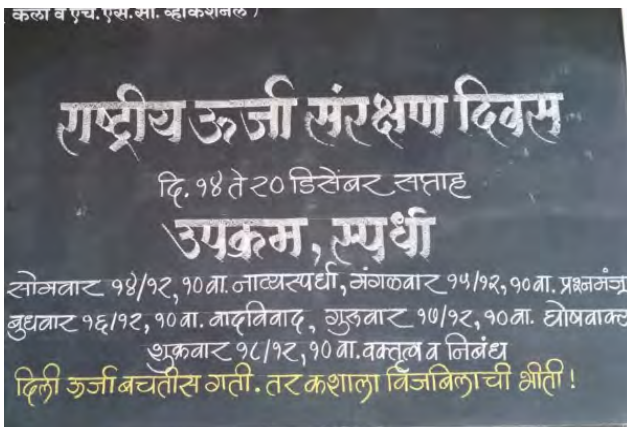 कला व एच. एस. सी. व्होकेशनल )
राष्ट्रीय ऊर्जा संरक्षण दिवस
दि. १४ ते २० डिसेंबर सप्ताह
उपक्रम, स्पर्धा
सोमवार १४/१२, १० वा. नाट्यस्पर्धा, मंगळवार १५/१२, १० वा. प्रश्नमंजू
बुधवार १६/१२, १० वा. वादविवाद, गुरुवार १७/१२, १० वा. घोषवाक्य
शुक्रवार १८/१२, १० वा. वक्तृत्व व निबंध
दिली ऊर्जा बचतीस गती. तर कशाला विजबिलाची भीती !